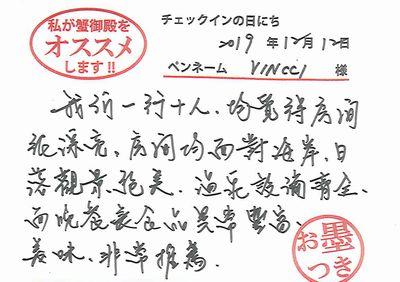 私が蟹御殿を
オススメ
します!!
チェックインの日にち
2019 年 12月 12日
ペンネーム VINCCI 様
我们一行十人、均覺得房間
很漂亮、房间均面對海岸、日
落觀景绝美、温泉設備齊全、
而晚餐長食品異常豐富、
美味、非常推薦.
お墨
つき